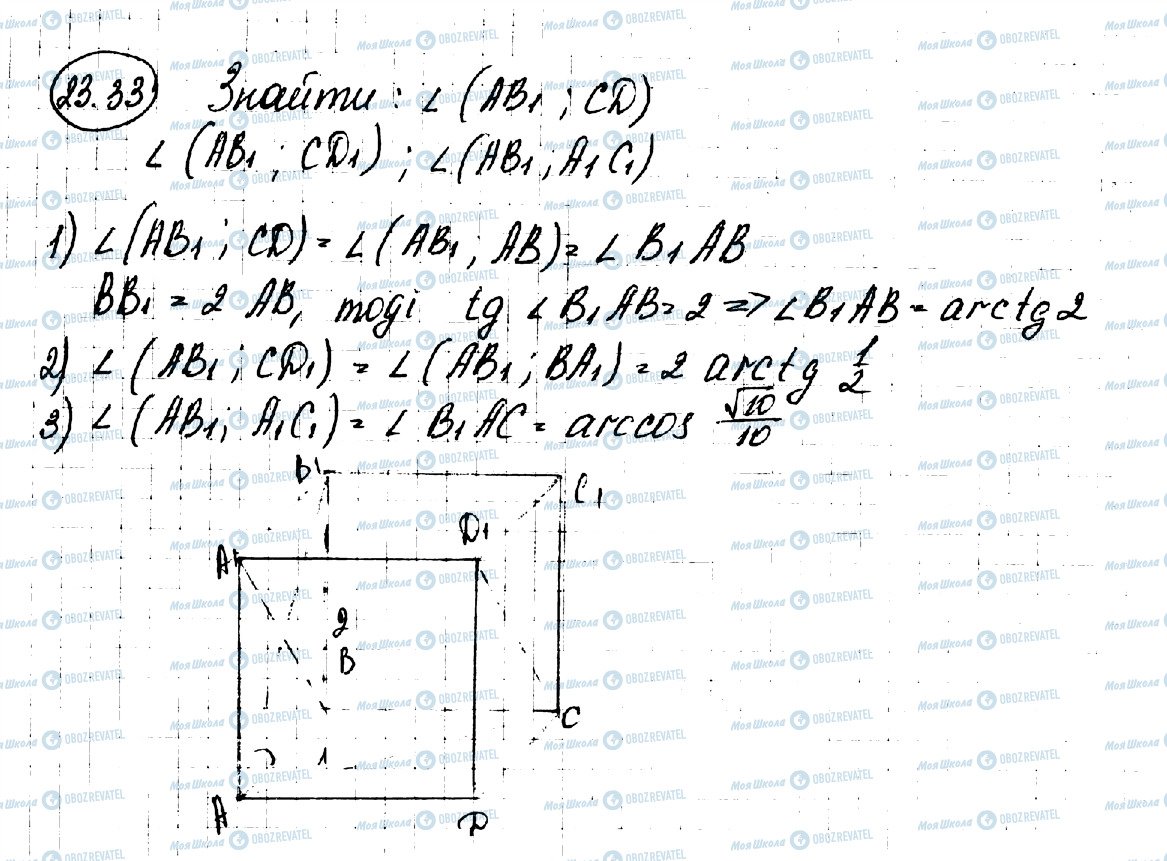 23.33 Знайти: ∠(AB₁; CD)
∠(AB₁; CD₁); ∠(AB₁; A₁C₁)
1) ∠(AB₁; CD) = ∠(AB₁, AB) = ∠B₁AB
BB₁ = 2 AB, тоді tg ∠B₁AB = 2 => ∠B₁AB = arctg 2
2) ∠(AB₁; CD₁) = ∠(AB₁; BA₁) = 2 arctg 1/2
3) ∠(AB₁; A₁C₁) = ∠B₁AC = arccos √10/10
B₁
C₁
D₁
A₁
2
B
C
1
A
D
Моя Школа OBOZREVATEL